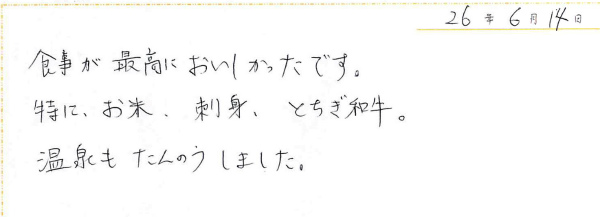 26年6月14日
食事が最高においしかったです。
特に、お米、刺身、とちぎ和牛。
温泉もたんのうしました。